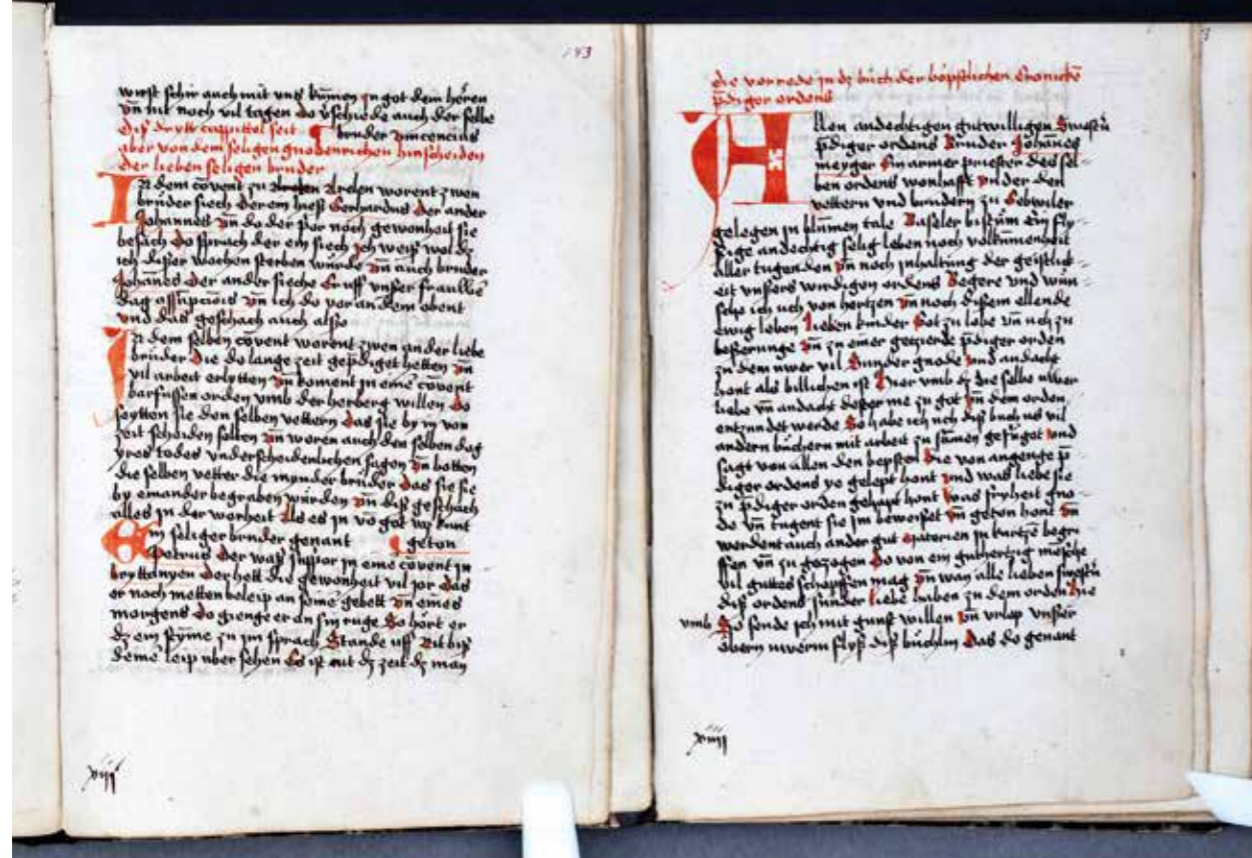 193
wirst schir auch mit uns kumen zu got dem heren
vn nit noch vil tagen do v̈schiede auch der selbe
Diß drytt cappittel seit ¶ bruder vincencius
aber von dem seligen gnodenrichen hinscheiden
der lieben seligen bruder
In dem cōvent zu Arelen worent zwen
brüder siech der ein hieß Gerhardus der ander
Johannes vn do der por noch gewonheit sie
besach do sprach der ein siech ich weiß wol dz
ich disser wochen sterben würde vn auch bruder
Johānes der ander sieche Er uff unser frauwē
dag assūpcionis vn ich do vor an dem obent
und das geschach auch also
In dem selben cōvent worent zwen ander liebe
brüder die do lange zeit gep̄diget hetten vn
vil arbeit erlytten vn koment in eine cōvent
barfussen orden umb der herberg willen do
seytten sie den selben vettern das sie by in von
zeit scheiden solten vn woren auch den selben dag
yres todes underscheidenlichen sagen vn botten
die selben vetter die mynder brüder das sie sie
by einander begraben würden vn diß geschach
alles in der worheit als es in vō got waz kunt
Ein seliger bruder genant ¶ geton
Petrus der waß supp̄ior in eine cōvent in
bryttanyen der hett die gewonheit vil jor das
er noch metten beleip an sime gebett vn eines
morgens do gienge er an sin ruge So hort er
dz ein styme zu im sprach Stande uff Zit biß
deme leip uber sehen Es ist nit dz zeit dz man
xiij
3
die vorrede in dz büch der böpstlichen Cronickē
p̄diger ordens
Allen andechtigen gutwilligen Swestn̄
p̄diger ordens Bruder Johannes
meyger Ein armer priester des sel-
ben ordens wonhafft under den
vettern und brudern zu Gebwiler
gelegen in blümen tale Baseler bistum Ein fly-
ssige andechtig selig leben noch volkumenheit
aller tugenden vn noch inhaltung der geistlich-
eit unsers wirdigen ordens Begere und wün-
sche ich uch von hertzen vn noch disem ellende
ewig leben Lieben kinder Got zu lobe vn uch zu
besserunge vn zu einer getzierde p̄diger orden
zu dem uwer vil Sunder gnode und andacht
hont als billichen ist Aber umb dz die selbe uwer
liebe vn andacht dester me zu got vn dem orden
entzundet werde So habe ich uch diß buch us vil
andern büchern mit arbeit zu samen gefüget und
sagt von allen den bepsten die von angenge p̄-
diger ordens ye gelept hont und was liebe sie
zu p̄diger orden gehapt hont was fryheit gno-
de vn tugent sie im bewiset vn geton hont vn
werdent auch ander gut materien in kurtze begri-
ffen vn zu gezogen do von ein guthertzig mensche
vil guttes schopffen mag vn wan alle lieben swestn̄
diß ordens sunder liebe haben zu dem orden hie
umb So sende ich mit gunst willen vn urlop unser
obern uwerm flyß diß büchlin das do genant
xiiij